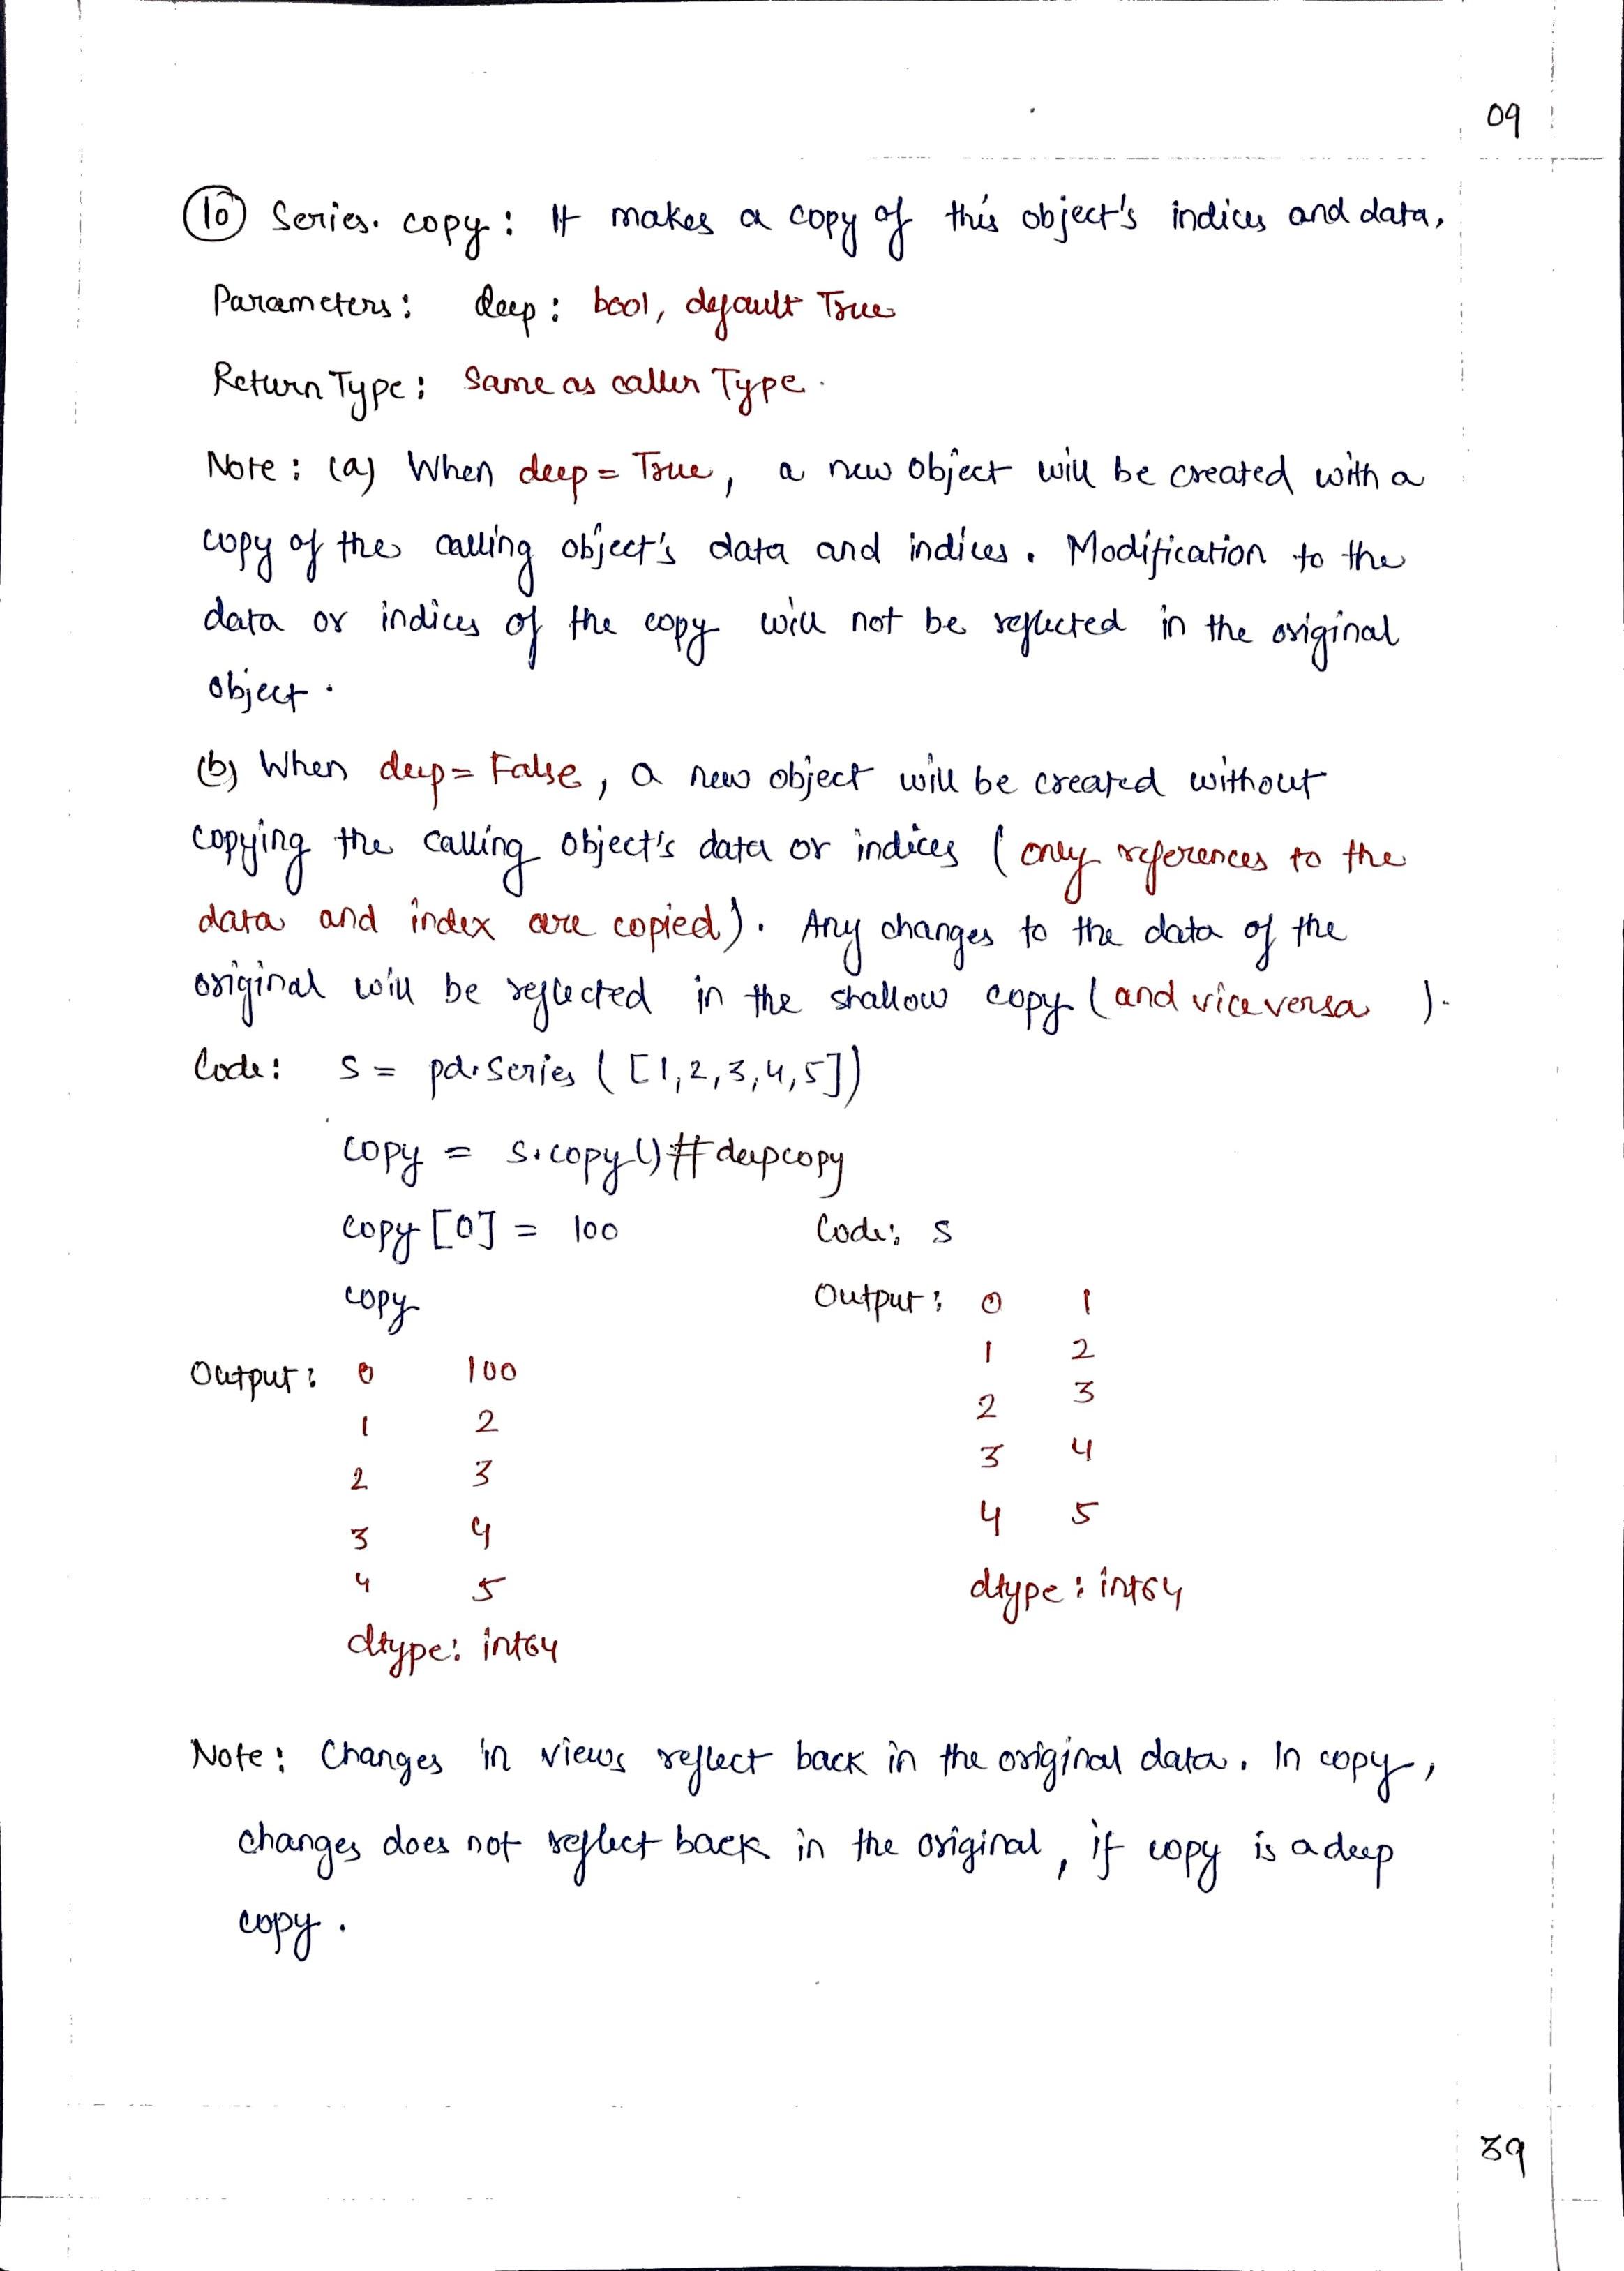 09
10 Series. copy : It makes a copy of this object's indices and data,
Parameters : deep : bool, default True
Return Type : Same as caller Type.
Note : (a) When deep = True, a new object will be created with a
copy of the calling object's data and indices. Modification to the
data or indices of the copy will not be reflected in the original
object.
(b) When deep = False, a new object will be created without
copying the calling object's data or indices ( only references to the
data and index are copied). Any changes to the data of the
original will be reflected in the shallow copy (and viceversa ).
Code : S = pd.Series ( [1,2,3,4,5])
copy = s.copy() # deepcopy
copy [0] = 100 Code: S
copy
Output : 0 1
1 2
2 3
3 4
4 5
dtype : int64
Output : 0 100
1 2
2 3
3 4
4 5
dtype: int64
Note : Changes in views reflect back in the original data. In copy,
changes does not reflect back in the original, if copy is a deep
copy.
39